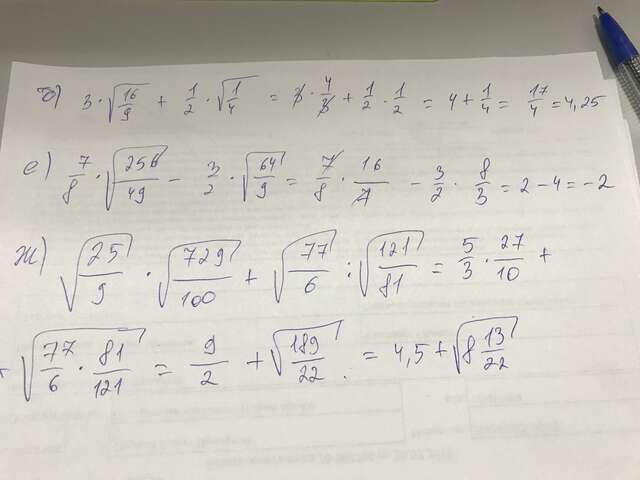 д) 3 · √(16/9) + 1/2 · √(1/4) = 3 · 4/3 + 1/2 · 1/2 = 4 + 1/4 = 17/4 = 4,25
е) 7/8 · √(256/49) − 3/2 · √(64/9) = 7/8 · 16/7 − 3/2 · 8/3 = 2 − 4 = −2
ж) √(25/9) · √(729/100) + √(77/6) : √(121/81) = 5/3 · 27/10 +
+ √(77/6 · 81/121) = 9/2 + √(189/22) = 4,5 + √(8 13/22)